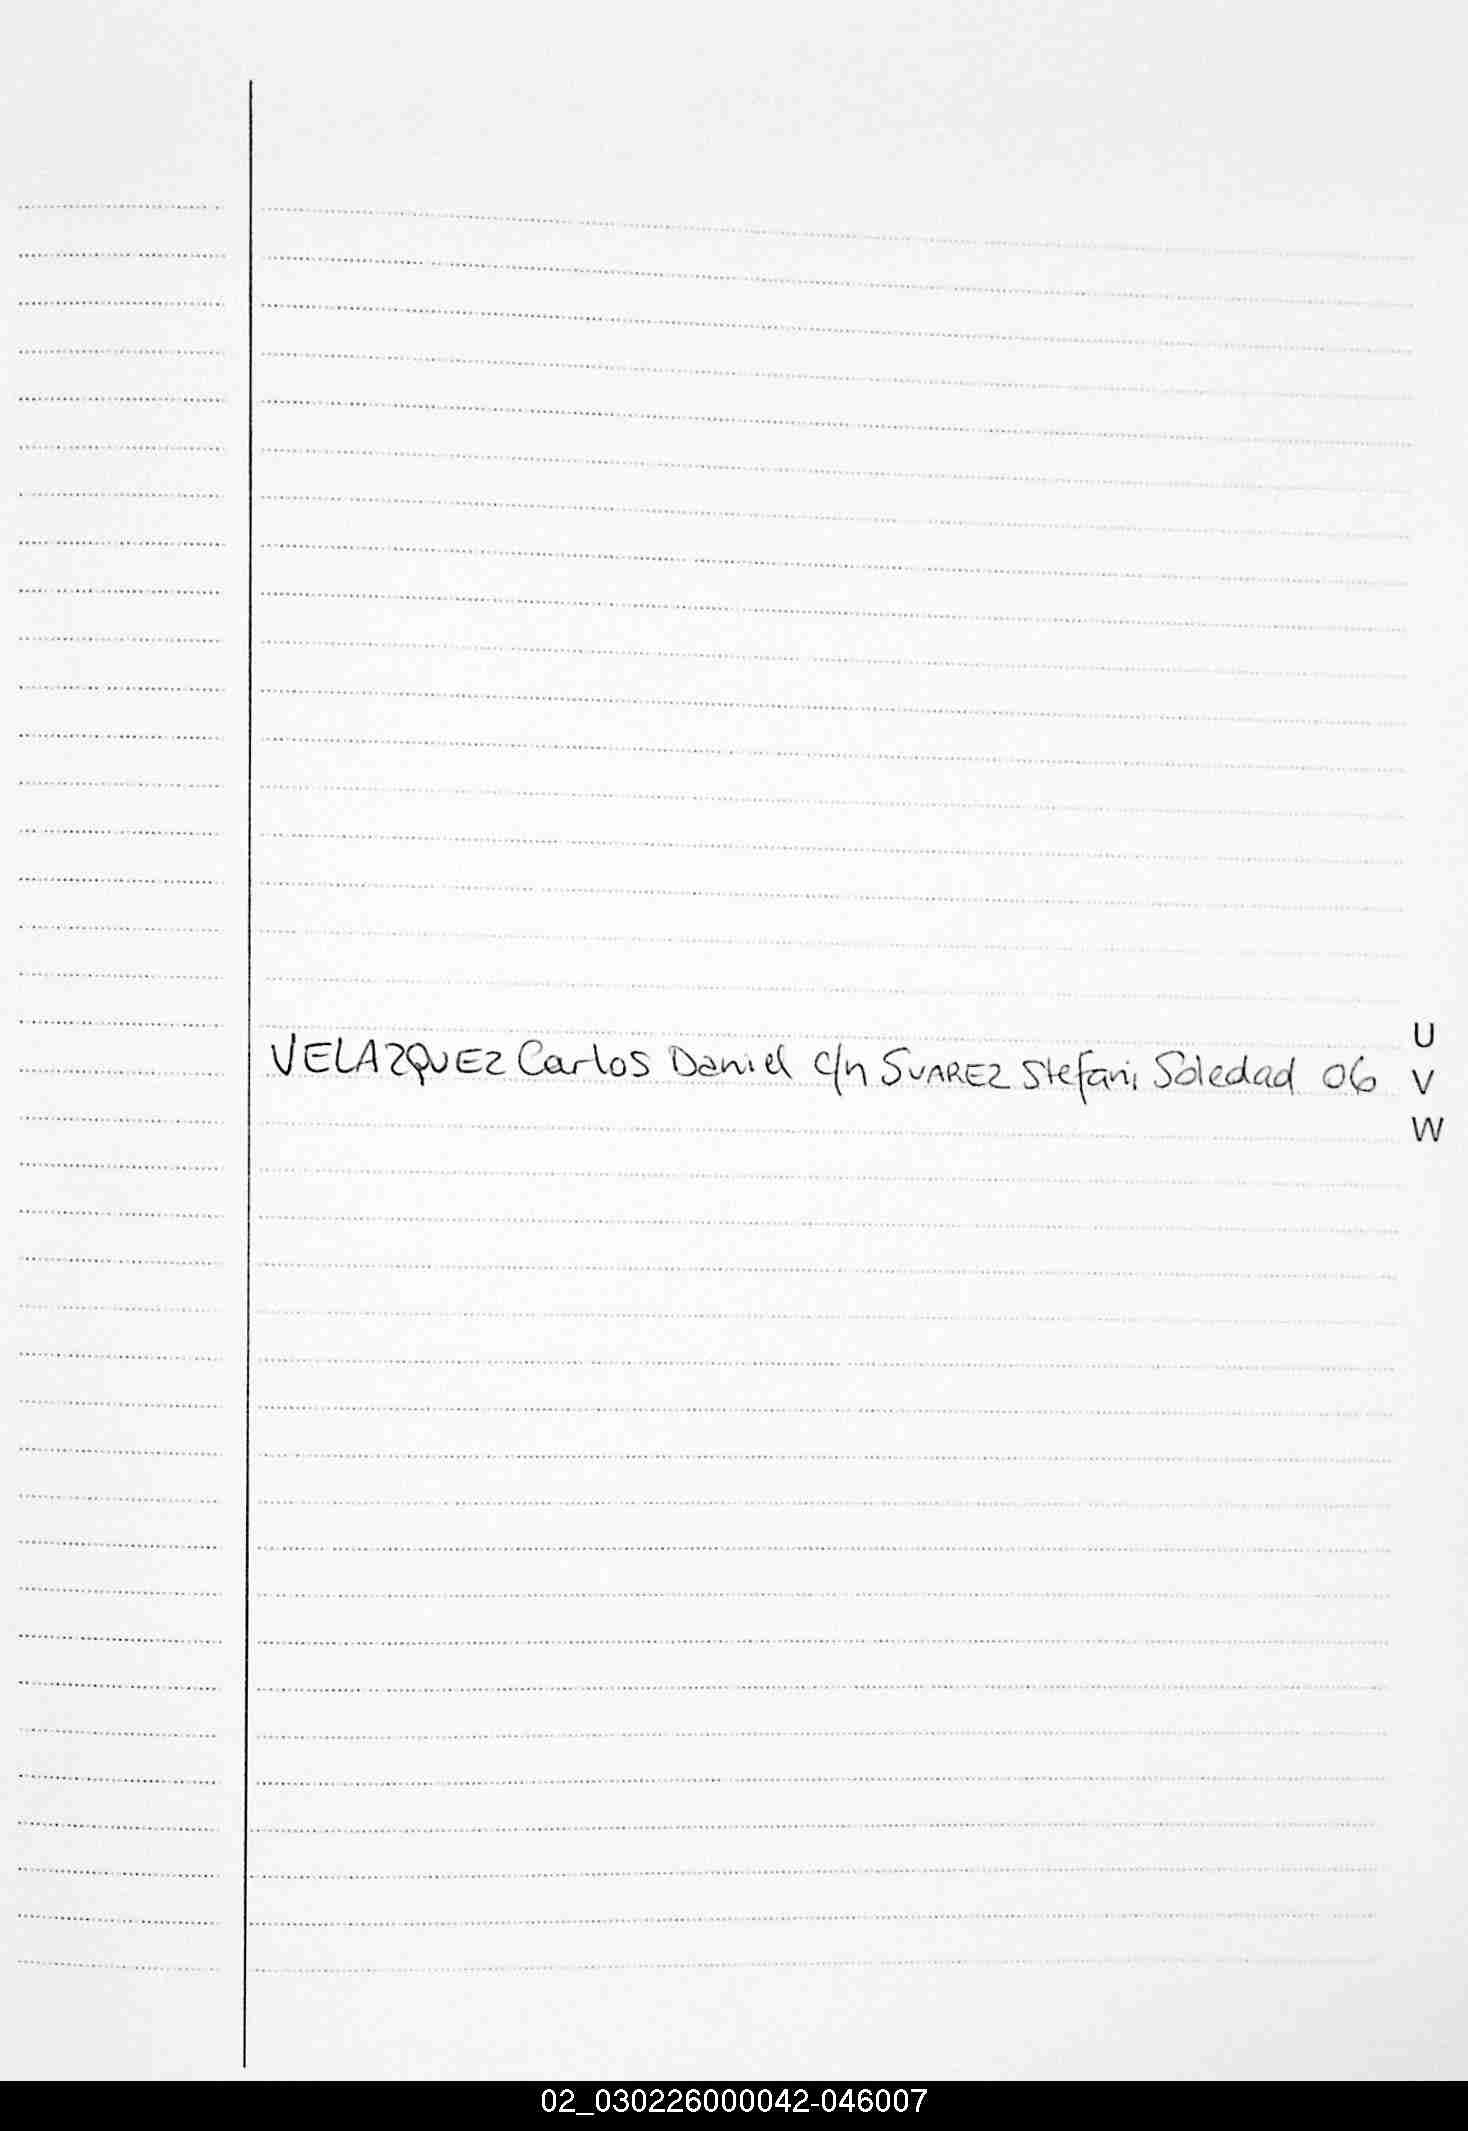 U
VELAZQUEZ Carlos Daniel c/n SUAREZ Stefani Soledad 06 V
W
02_030226000042-046007